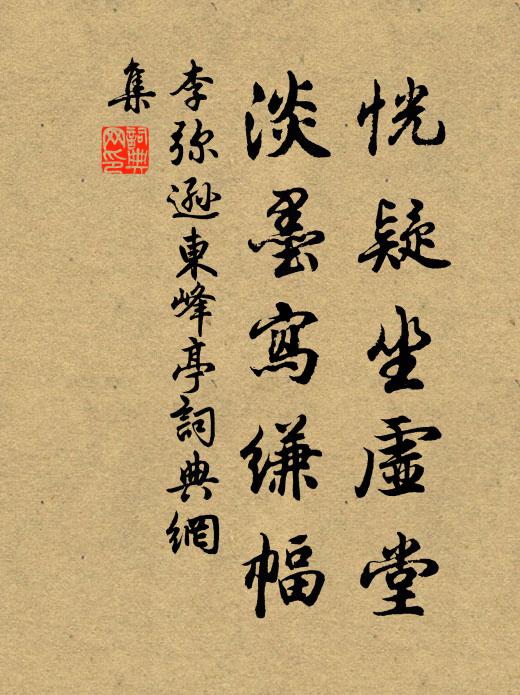 恍疑坐虛堂
淡墨寫縑幅
李弥遜東峰亭詞典網
集
詞典网印